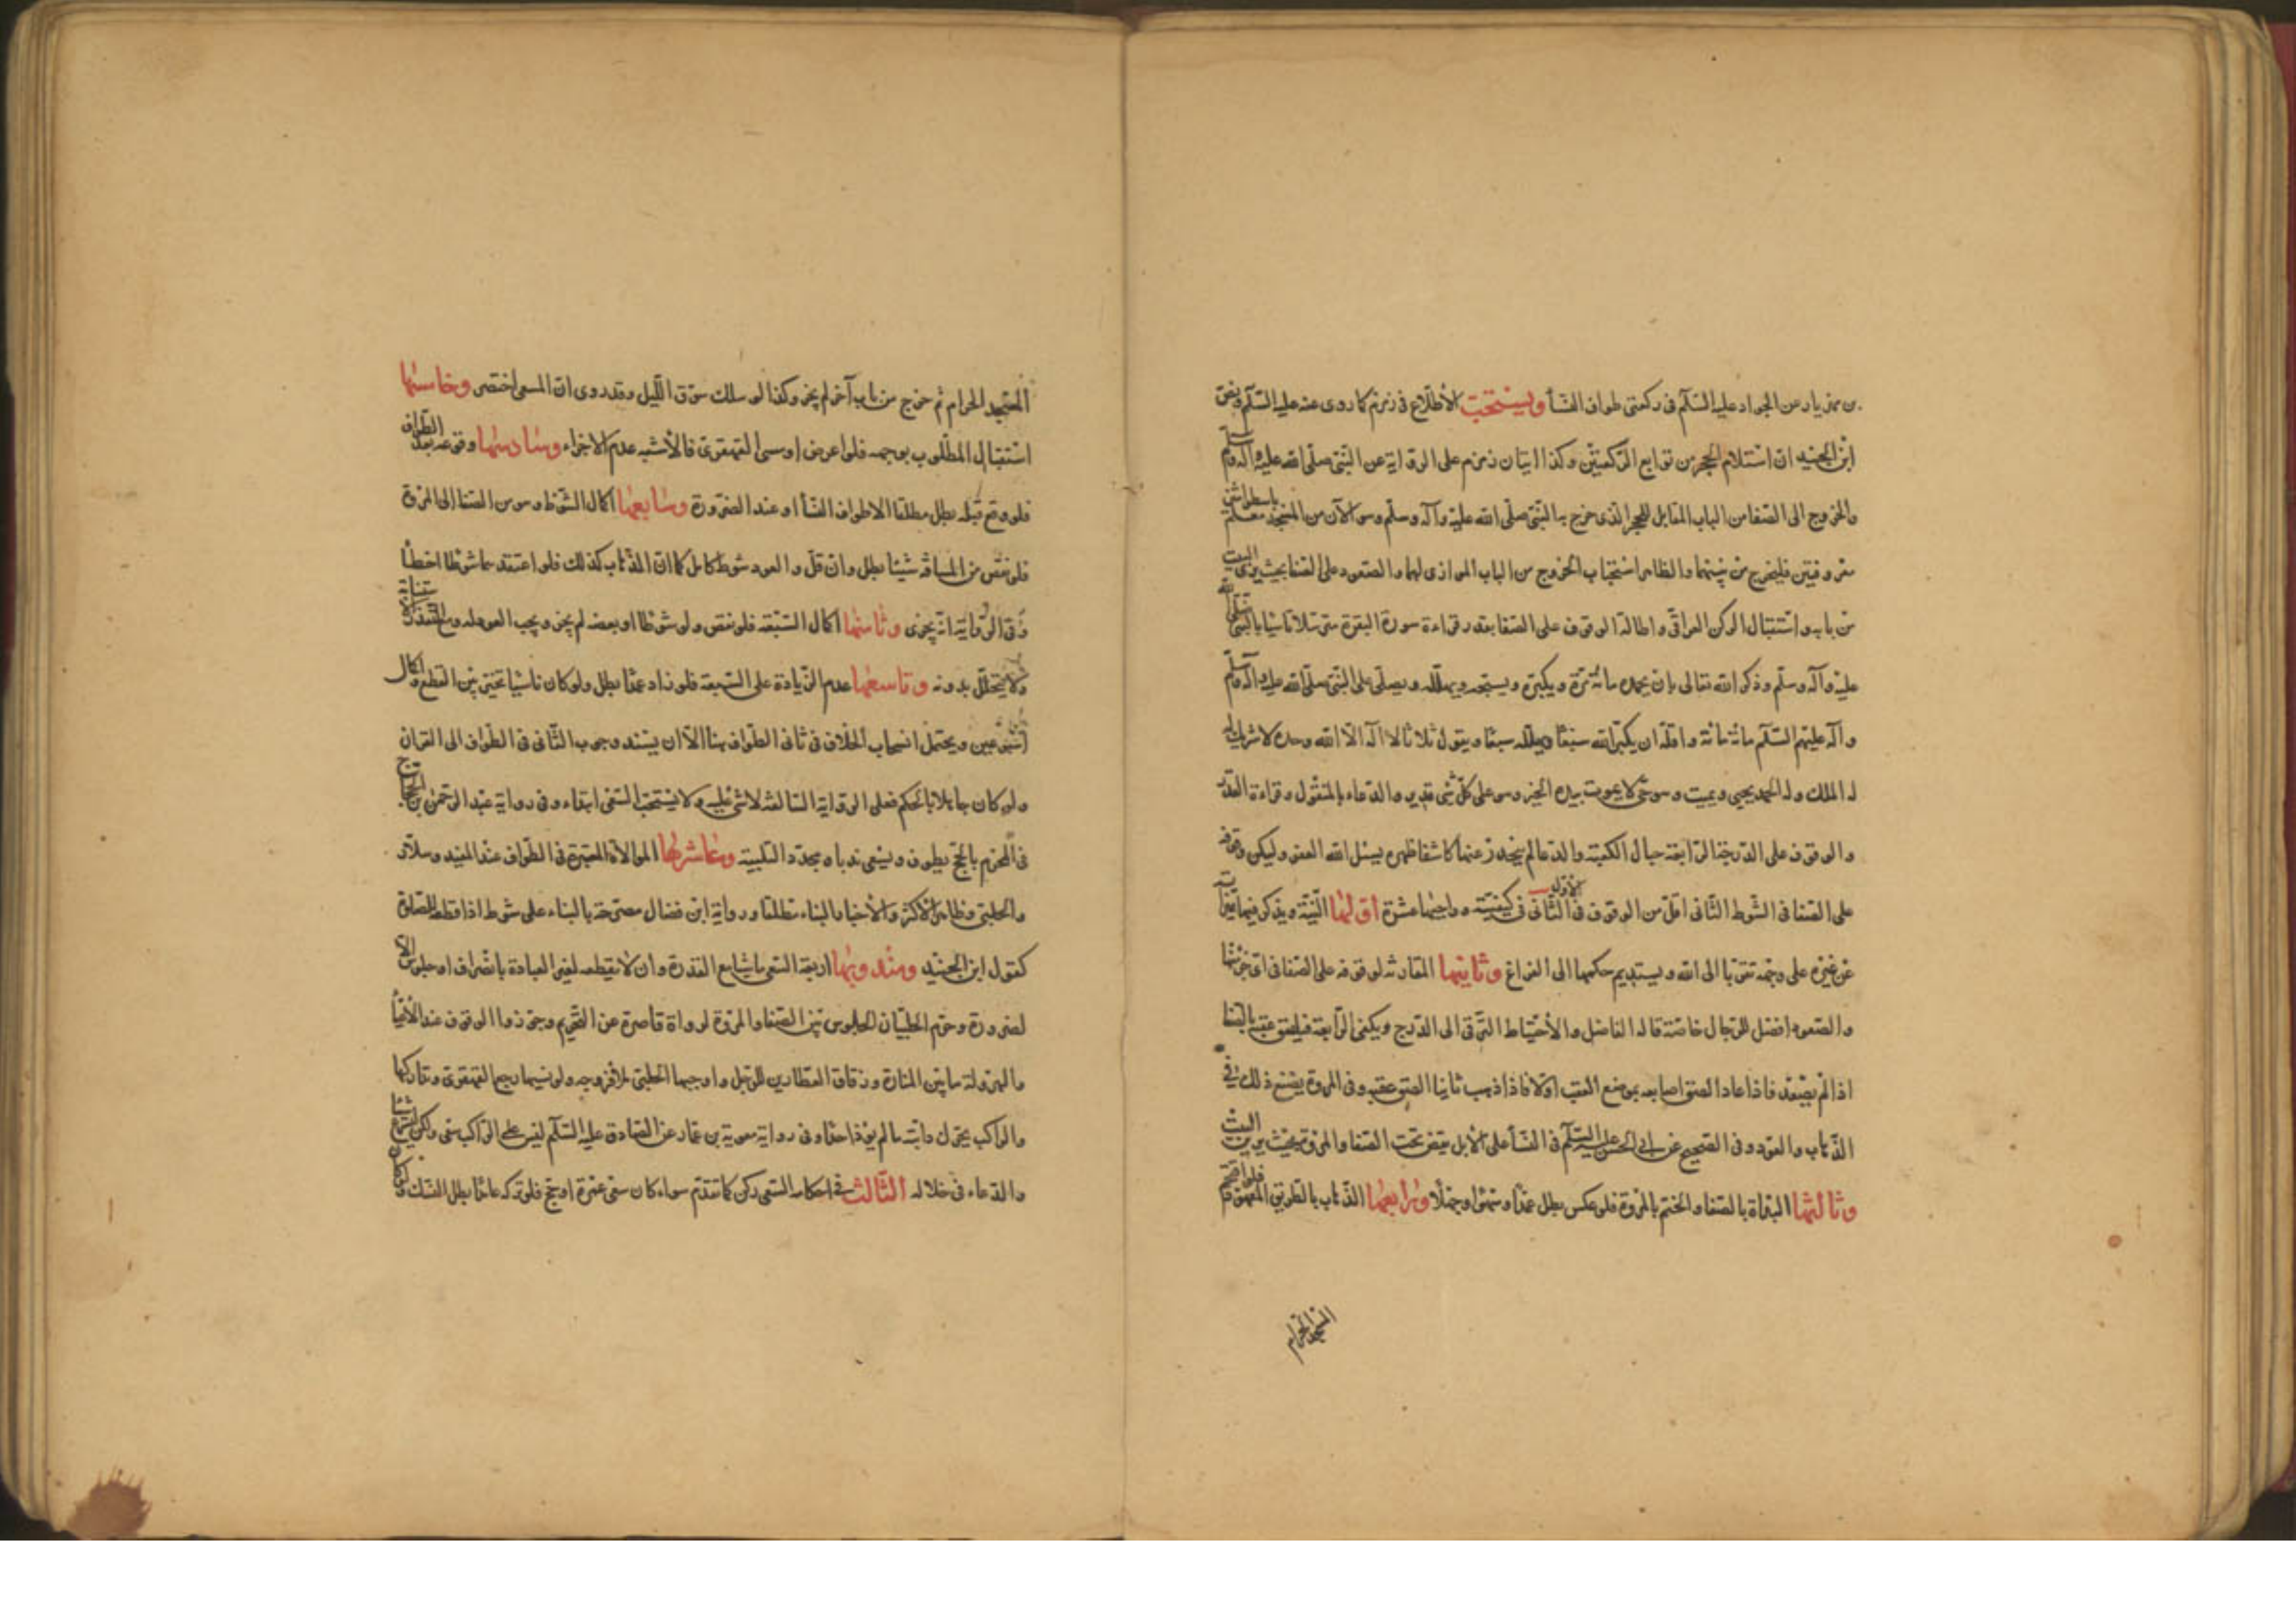 بن مهزيار عن الجواد عليه السّلم فى ركعتى طواف النّسآ ويستحبّ الأطّلاع فى زمزم كما روى عنه عليه السّلم ونصّ
ابن الجنيد انّ استلام الحجر من توابع الرّكعتين وكذا اتيان زمزم على الرواية عن النّبىّ صلّى الله عليه وآله وسلّم
والخروج الى الصّفا من الباب المقابل للحجر الّذى خرج به النّبىّ صلّى الله عليه وآله وسلّم وهو الآن من المسجد معلّم باسطوانتين
معروفتين فليخرج من بينهما والظاهر استحباب الخروج من الباب الموازى لهما والصّعود على الصّفا بحيث يرى البيت
من بابه واستقبال الركن العراقى واطالة الوقوف على الصّفا بقدر قراءة سورة البقرة مترتّلا تأسّيا بالنّبىّ صلّى الله
عليه وآله وسلّم وذكر الله تعالى بان يحمده مائة مرّة ويكبّره ويسبّحه ويهلّله ويصلّى على النّبىّ صلّى الله عليه وآله وسلّم
وآله عليهم السّلم مائة مائة واقلّه ان يكبّر الله سبعًا ويهلّله سبعًا ويقول ثلاثا لا اله الّا الله وحده لا شريك له
له الملك وله الحمد يحيى ويميت وهو حىّ لا يموت بيده الخير وهو على كلّ شئ قدير والدّعاء بالمنقول وقراءة القدر
والوقوف على الدّرجة الرّابعة حيال الكعبة والدّعا ثم ينحدر عنها كاشفا ظهره يسئل الله العفو وليكن وقوفه
على الصّفا فى الشّوط الثّانى اقلّ من الوقوف فى الأوّل الثّانى فى كيفيّته وواجبها عشرة اوّلها النّيّة ويذكر فيها
عن غيره على وجهه تقرّبا الى الله ويستديم حكمها الى الفراغ وثانيها المقارنة لوقوفه على الصّفا فى اىّ جزء منها
والصّعود افضل للرّجال خاصّة قاله الفاضل والأحتياط التّرقّى الى الدّرج ويكفى الرّابعة فيلصق عقبه بالصّفا
اذا لم يصعد فاذا عاد الصق اصابعه بموضع العقب اوّلا فاذا ذهب ثانيا الصق عقبه وفى المروة يصنع ذلك فى
الذّهاب والعود وفى الصّحيح عن ابى الحسن عليه السّلم فى النّسآ على الأبل يقفن تحت الصّفا والمروة بحيث يرين البيت
وثالثها البدأة بالصّفا والختم بالمروة فلو عكس بطل عمدًا وسهوًا وجهلًا ورابعها الذّهاب بالطريق المعهود فلو اقتحم
المسجد الحرام
المسجد الحرام ثم خرج من باب آخر لم يجز وكذا لو سلك سوق اللّيل وقد روى انّ المسعى اختصر وخامسها
استقبال المطلوب بوجهه فلو اعرض او مشى القهقرى فالأشبه عدم الاجزاء وسادسها وقوعه بعد الطّواف
فلو وقع قبله بطل مطلقا الا طواف النّسآ او عند الضّرورة وسابعها اكمال الشّوط وهو من الصّفا الى المروة
فلو نقص من المسافة شيئا بطل وان قلّ والعود شوط كامل كما انّ الذّهاب كذلك فلو اعتقدهما شوطا اخطأ
وفى الرّواية انّه يجزى وثامنها اكمال السّبعة فلو نقص ولو شوطا او بعضه لم يجز ويجب العود له ومع التّعذّر الاستنابة
ولا يتحلّل بدونه وتاسعها عدم الزّيادة على السّبعة فلو زاد عمدًا بطل ولو كان ناسيًا تخيّر بين القطع واكمال
اسبوعين ويحتمل انسحاب الخلاف فى ثانى الطّواف هنا الّا ان يستند وجوب الثّانى فى الطّواف الى القران
ولو كان جاهلا بالحكم فعلى الرواية السّالفة لا شئ عليه ولا يستحبّ السّعى ابتداء وفى رواية عبد الرحمن بن الحجّاج
فى المحرم بالحجّ يطوف ويسعى ندبا ويجدّد التلبية وعاشرها الموالاة المعتبرة فى الطّواف عند المفيد وسلّار
والحلبى وظاهر الأكثر والأخبار البناء مطلقا ورواية ابن فضّال مصرّحة بالبناء على شوط اذا قطعه للصّلوة
كقول ابن الجنيد ومندوبها اربعة السّعى ماشيا مع القدرة وان لا يقطعه لغير العبادة بانصراف او جلوس الّا
لضرورة وحرّم الحلبيّان الجلوس بين الصّفا والمروة لرواية قاصرة عن التّحريم وجوّزوا الوقوف عند الأعياء
والهرولة ما بين المنارة وزقاق العطّارين للرّجل واوجبها الحلبى فلا فروجه ولو نسيها رجع القهقرى وتداركها
والرّاكب يحرّك دابّته ما لم يؤذ احدًا وفى رواية معوية بن عمّار عن الصّادق عليه السّلم ليس على الرّاكب سعى ولكن ليسرع شيئا
والدّعاء فى خلاله الثّالث فى احكامه السّعى ركن كما تقدّم سواء كان سعى عمرة او حجّ فلو تركه عامدًا بطل النّسك ولو كان